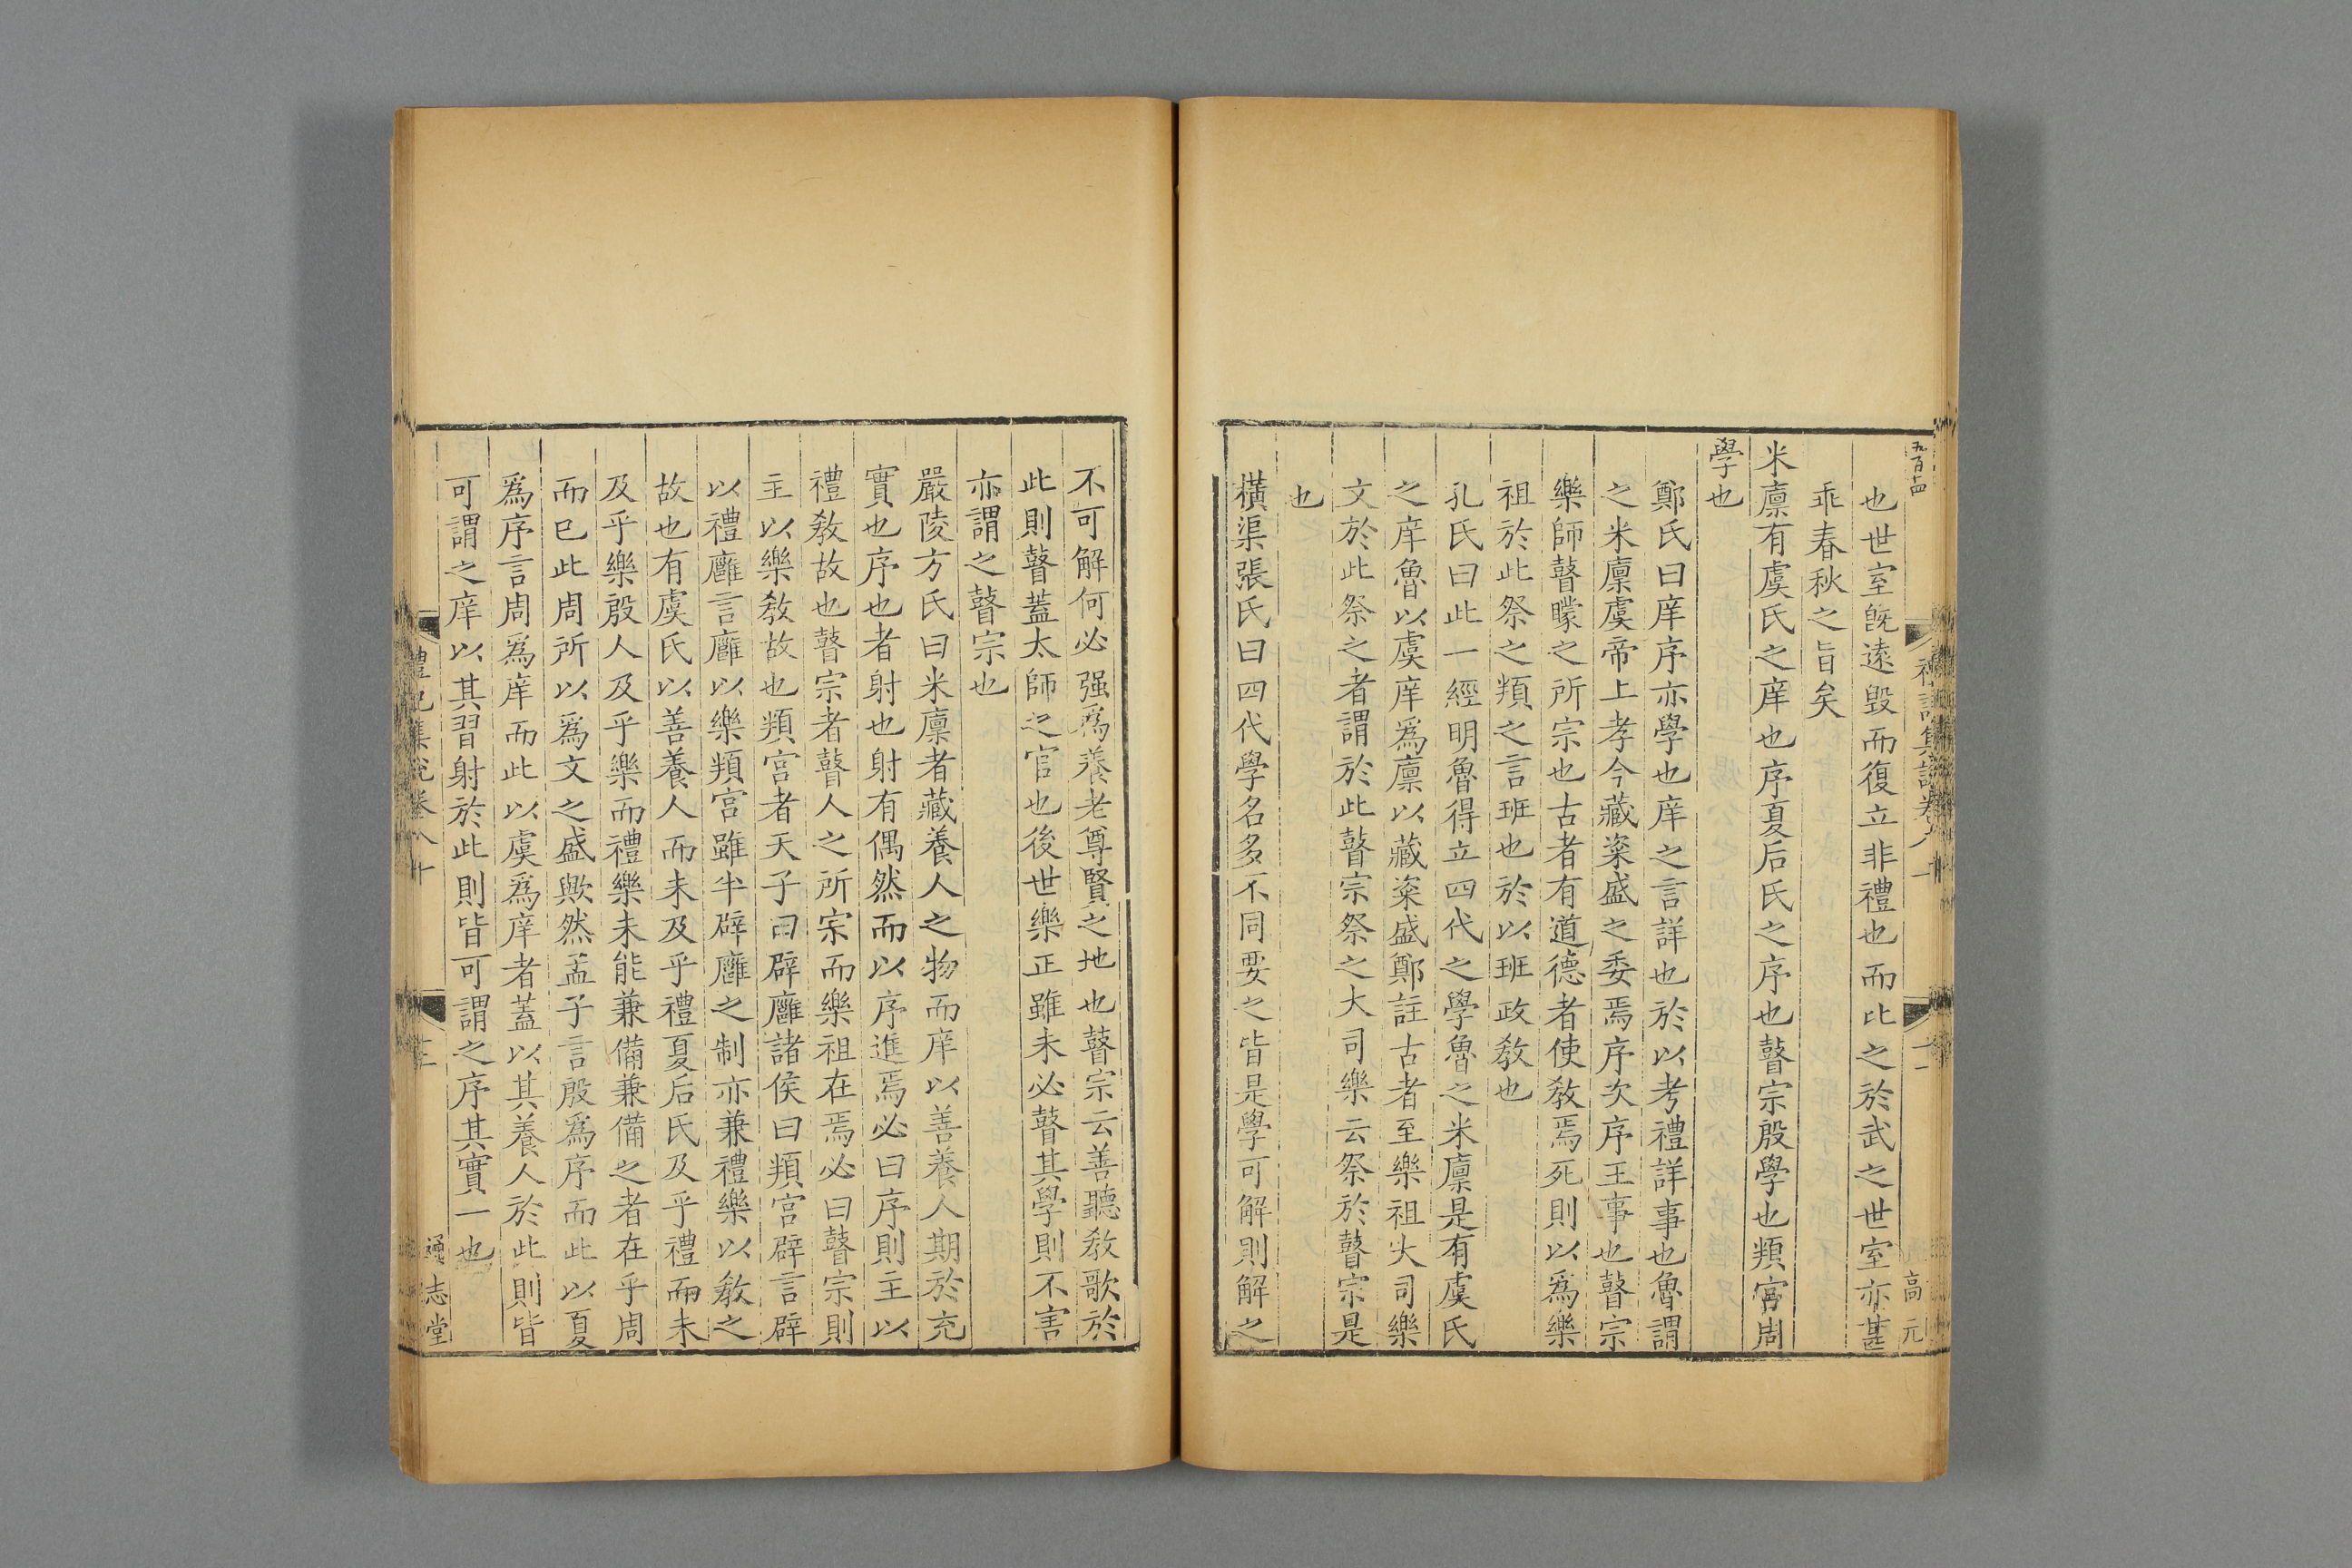 五百十四
禮記集說卷八十
高元
也世室旣遠毀而復立非禮也而比之於武之世室亦甚
乖春秋之旨矣
米廩有虞氏之庠也序夏后氏之序也瞽宗殷學也頖宮周
學也
鄭氏曰庠序亦學也庠之言詳也於以考禮詳事也魯謂
之米廩虞帝上孝今藏粢盛之委焉序次序王事也瞽宗
樂師瞽矇之所宗也古者有道德者使敎焉死則以爲樂
祖於此祭之頖之言班也於以班政敎也
孔氏曰此一經明魯得立四代之學魯之米廩是有虞氏
之庠魯以虞庠爲廩以藏粢盛鄭註古者至樂祖大司樂
文於此祭之者謂於此瞽宗祭之大司樂云祭於瞽宗是
也
橫渠張氏曰四代學名多不同要之皆是學可解則解之
不可解何必强爲養老尊賢之地也瞽宗云善聽敎歌於
此則瞽蓋太師之官也後世樂正雖未必瞽其學則不害
亦謂之瞽宗也
嚴陵方氏曰米廩者藏養人之物而庠以善養人期於充
實也序也者射也射有偶然而以序進焉必曰序則主以
禮敎故也瞽宗者瞽人之所宗而樂祖在焉必曰瞽宗則
主以樂敎故也頖宮者天子曰辟廱諸侯曰頖宮辟言辟
以禮廱言廱以樂頖宮雖半辟廱之制亦兼禮樂以敎之
故也有虞氏以善養人而未及乎禮夏后氏及乎禮而未
及乎樂殷人及乎樂而禮樂未能兼備兼備之者在乎周
而巳此周所以爲文之盛歟然孟子言殷爲序而此以夏
爲序言周爲庠而此以虞爲庠者蓋以其養人於此則皆
可謂之庠以其習射於此則皆可謂之序其實一也
禮記集說卷八十
通志堂